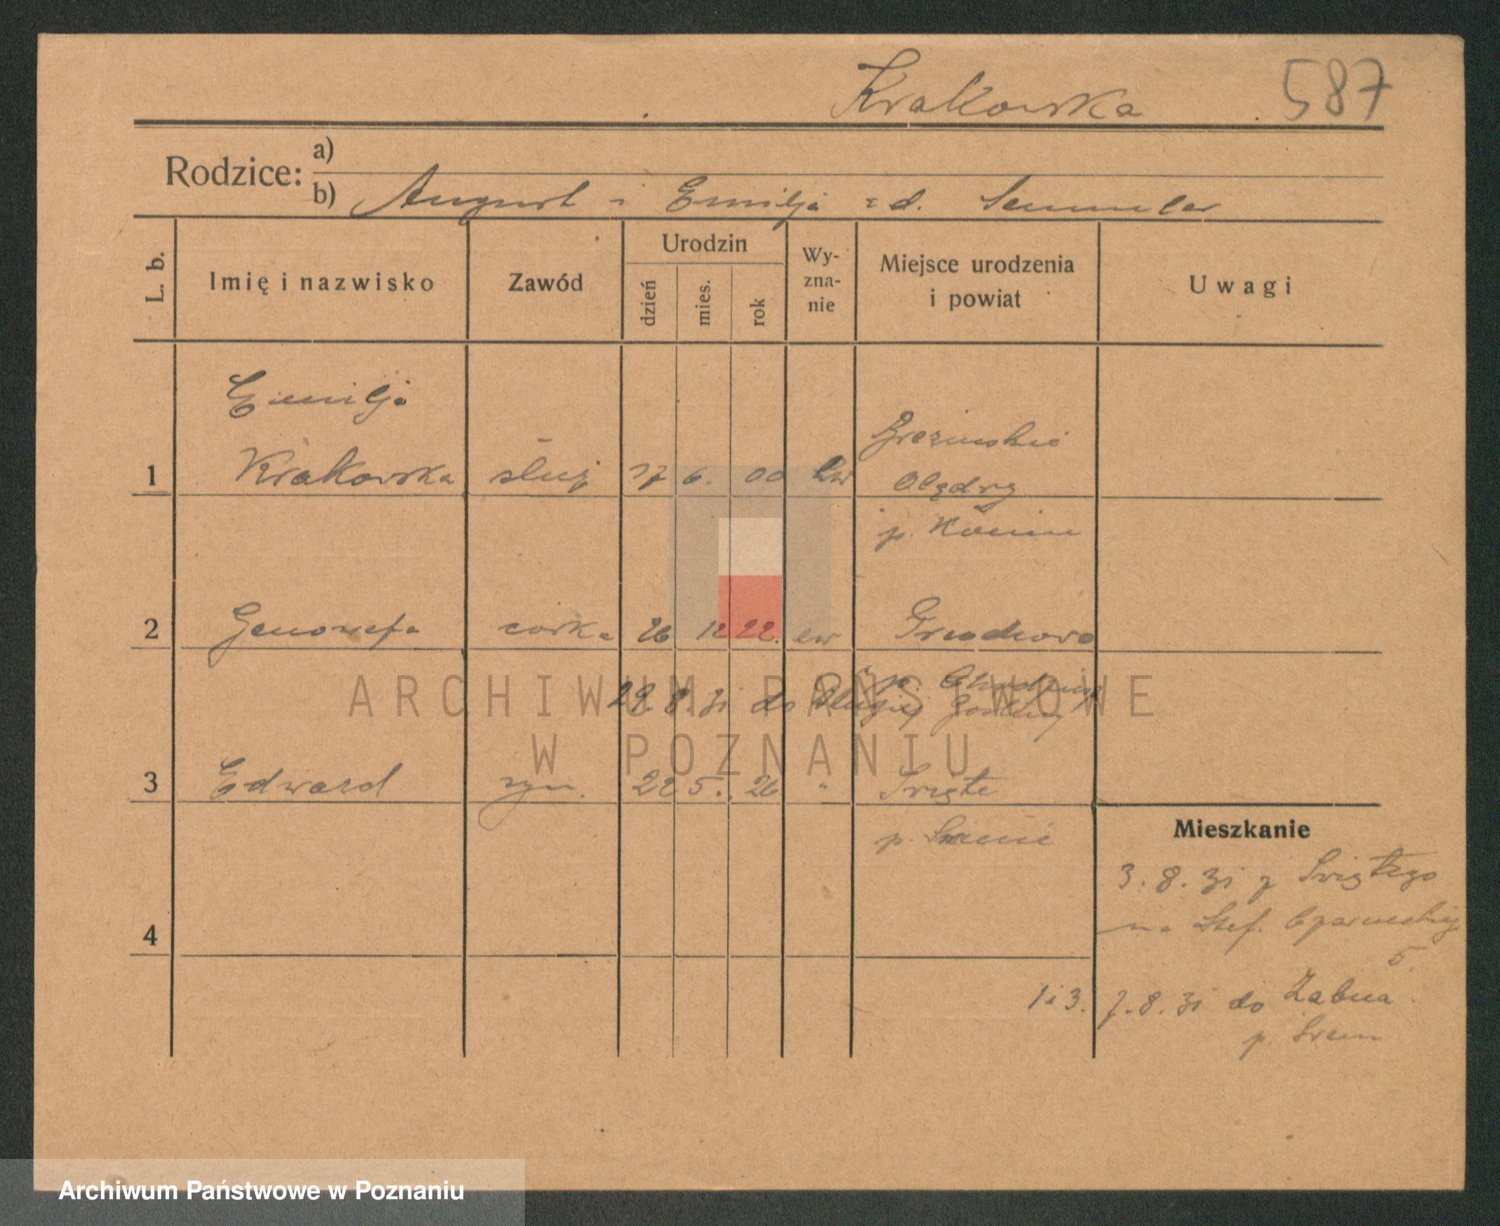 Krakowska 587
Rodzice: a)
b) August i Emilja z d. Semmler
L. b. Imię i nazwisko Zawód Urodzin dzień mies. rok Wy-zna-nie Miejsce urodzenia i powiat Uwagi
Emilja
1 Krakowska służ 17 6. 00 ew Brezinskie
Olędry
p. Konin
2 Genowefa corka 26 12 22. ew Grochowo
p.
29 8. 31 do Długiej Gośliny
3 Edward syn. 22 5. 26 " Święte
p.
Mieszkanie
3. 8. 31 z Świętego
na Stef. Czarneckiego
5.
4
1 i 3. 7. 8. 31 do Żabna
p. Śrem
ARCHIWUM PAŃSTWOWE
W POZNANIU
Archiwum Państwowe w Poznaniu